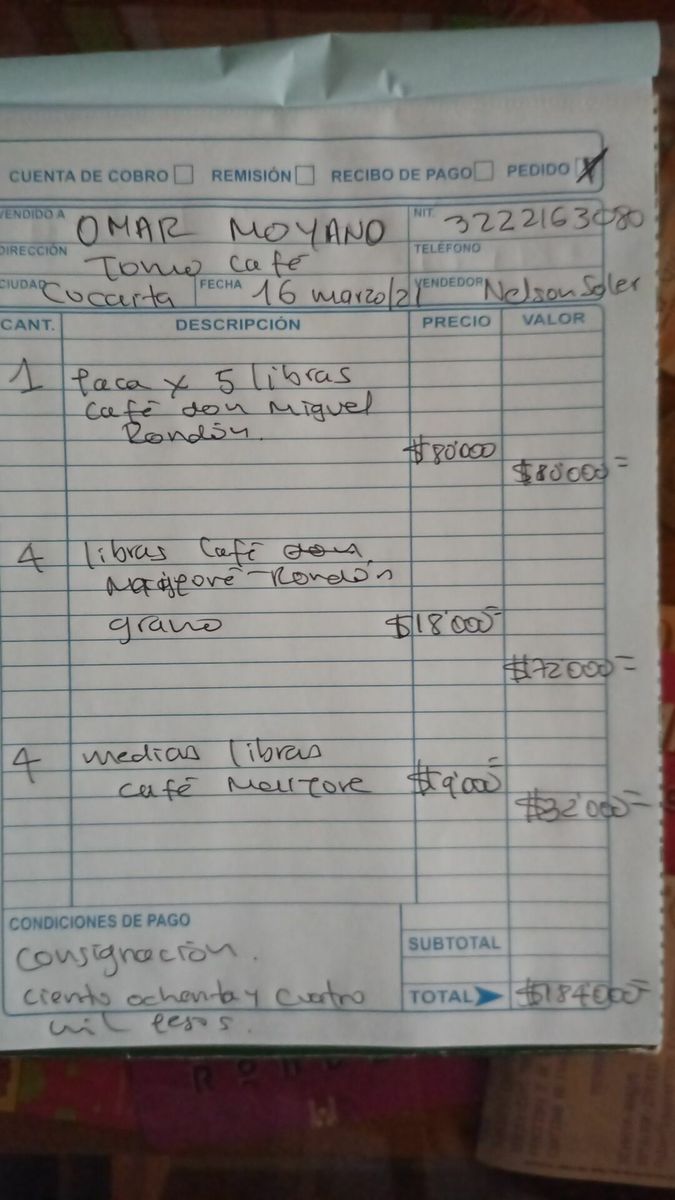 CUENTA DE COBRO REMISIÓN RECIBO DE PAGO PEDIDO X
VENDIDO A OMAR MOYANO NIT. 3222163080
DIRECCIÓN Tomo Café TELÉFONO
CIUDAD Cucaita FECHA 16 marzo/21 VENDEDOR Nelson Soler
CANT. DESCRIPCIÓN PRECIO VALOR
1 Paca x 5 libras
Café don Miguel
Rondón.
$80'000
$80'000=
4 libras Café don
Rondón
grano $18'000=
$72'000=
4 medias libras
café $9'000=
$32'000=
CONDICIONES DE PAGO
Consignación.
SUBTOTAL
ciento ochenta y cuatro TOTAL $184'000=
mil pesos.